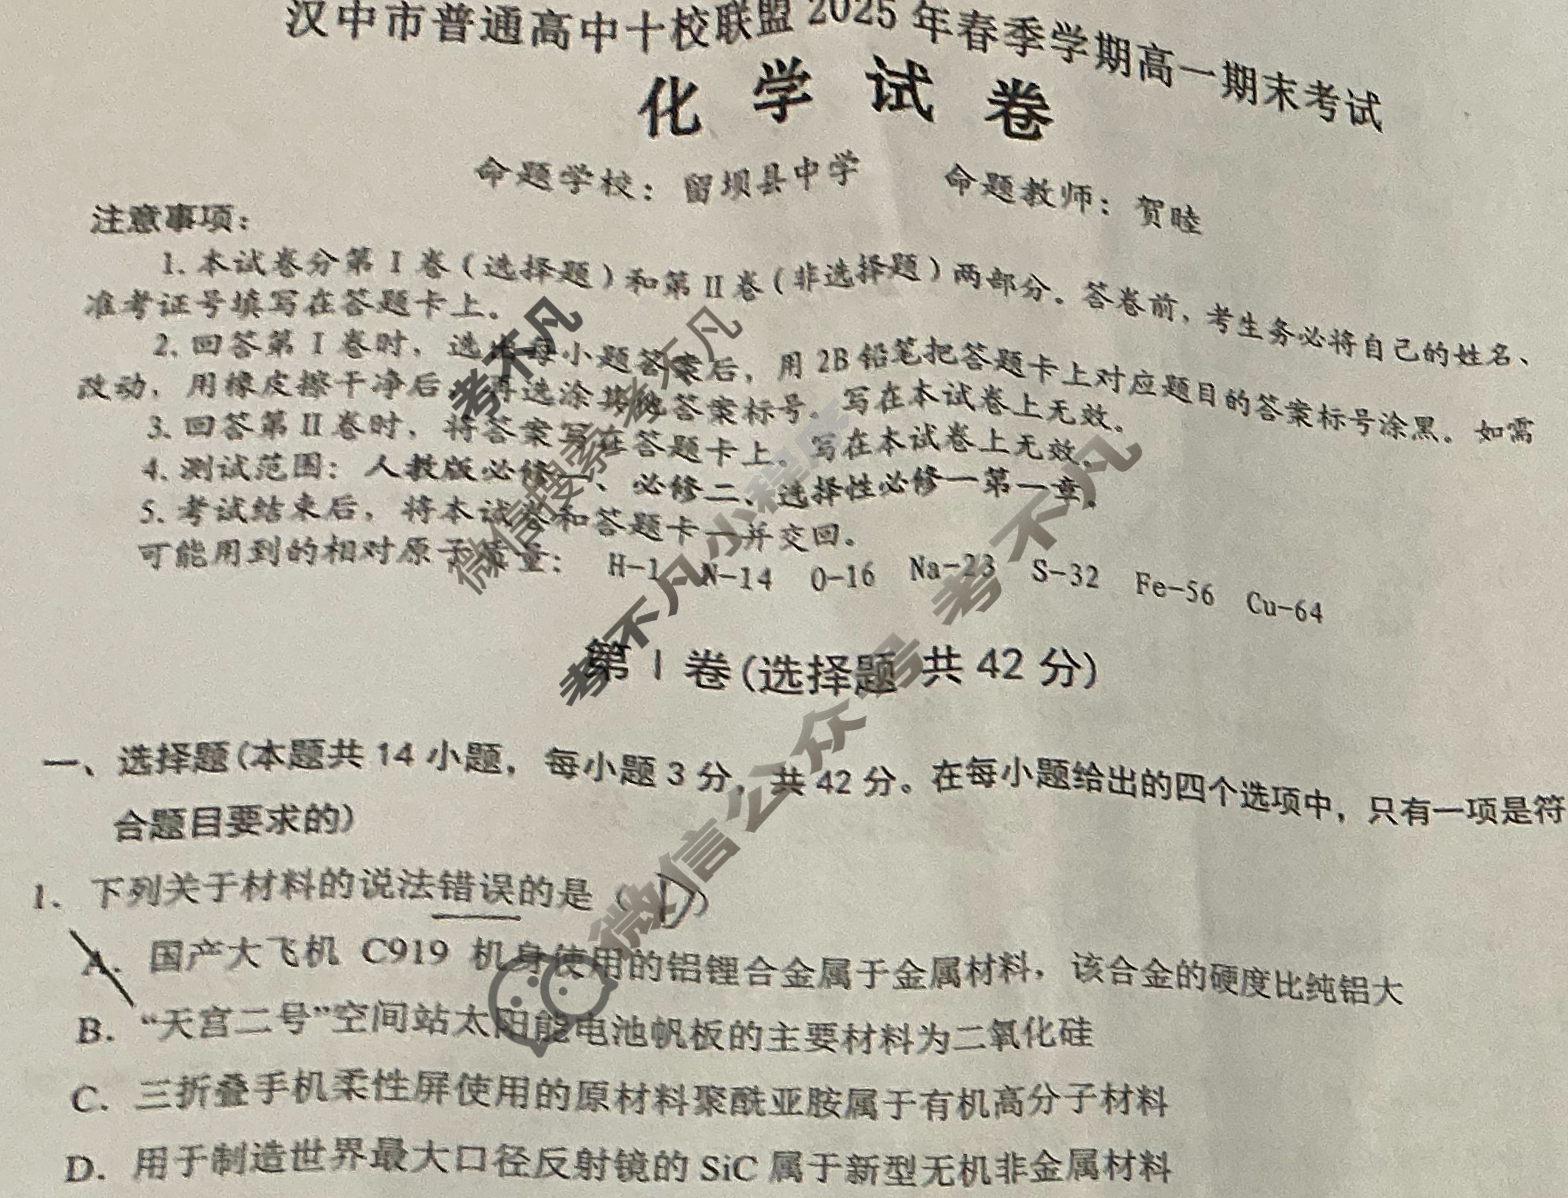 汉中市普通高中十校联盟2025年春季学期高一期末考试
化学试卷
命题学校：留坝县中学 命题教师：贺睦
注意事项：
1.本试卷分第Ⅰ卷（选择题）和第Ⅱ卷（非选择题）两部分。答卷前，考生务必将自己的姓名、
准考证号填写在答题卡上。
2.回答第Ⅰ卷时，选出每小题答案后，用2B铅笔把答题卡上对应题目的答案标号涂黑。如需
改动，用橡皮擦干净后，再选涂其他答案标号。写在本试卷上无效。
3.回答第Ⅱ卷时，将答案写在答题卡上。写在本试卷上无效。
4.测试范围：人教版必修一、必修二、选择性必修一第一章。
5.考试结束后，将本试卷和答题卡一并交回。
可能用到的相对原子质量： H-1 N-14 O-16 Na-23 S-32 Fe-56 Cu-64
第Ⅰ卷(选择题 共42分)
一、选择题(本题共14小题，每小题3分，共42分。在每小题给出的四个选项中，只有一项是符
合题目要求的)
1. 下列关于材料的说法错误的是（D）
A. 国产大飞机 C919 机身使用的铝锂合金属于金属材料，该合金的硬度比纯铝大
B. “天宫二号”空间站太阳能电池帆板的主要材料为二氧化硅
C. 三折叠手机柔性屏使用的原材料聚酰亚胺属于有机高分子材料
D. 用于制造世界最大口径反射镜的 SiC 属于新型无机非金属材料
考不凡
微信搜索 考不凡
考不凡小程序
微信公众号 考不凡